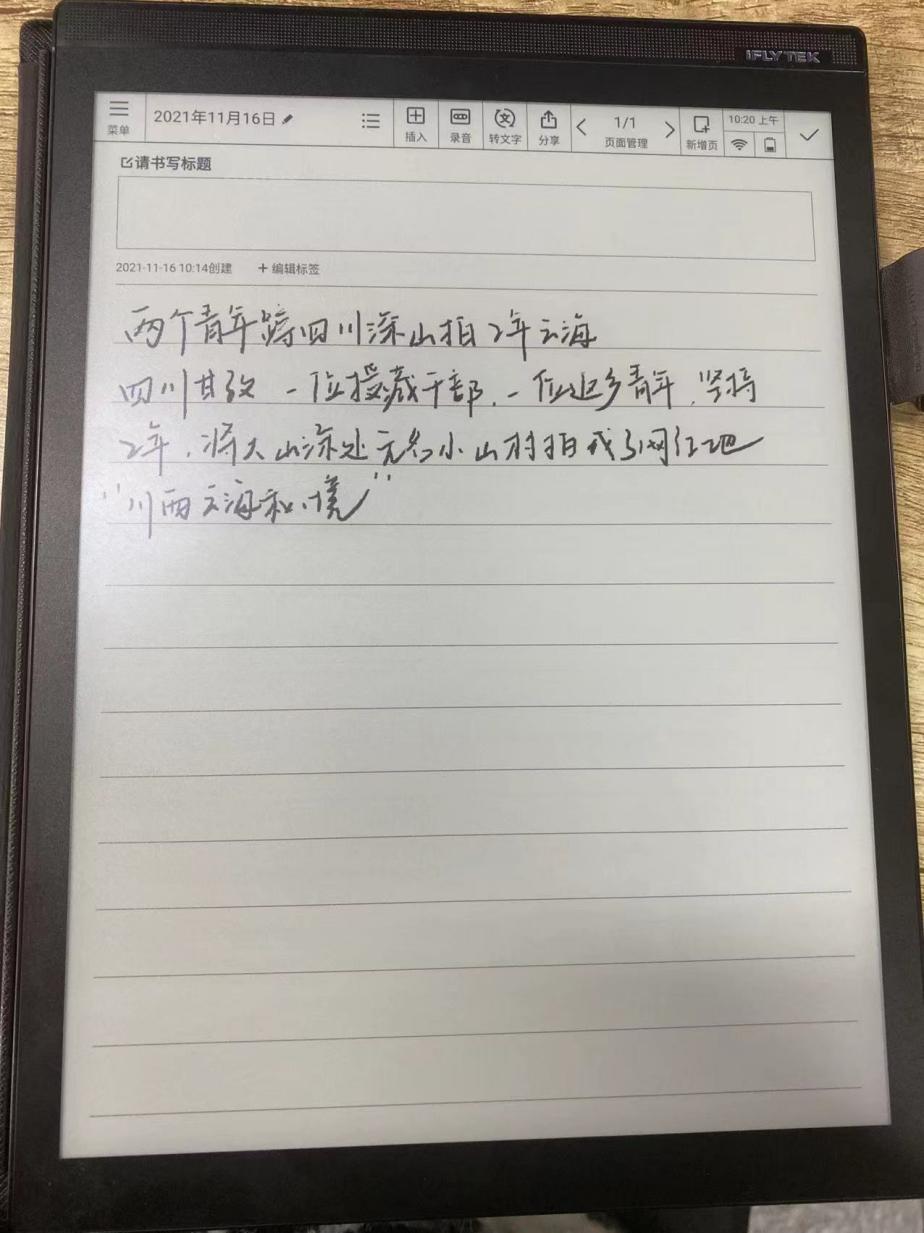 iFLYTEK
菜单
2021年11月16日
插入
录音
转文字
分享
1/1
页面管理
新增页
10:20 上午
请书写标题
2021-11-16 10:14创建 + 编辑标签
两个青年蹲四川深山拍2年云海
四川甘孜 一位援藏干部,一位返乡青年,坚持
2年,将大山深处无名小山村拍成了网红地
“川西云海秘境”